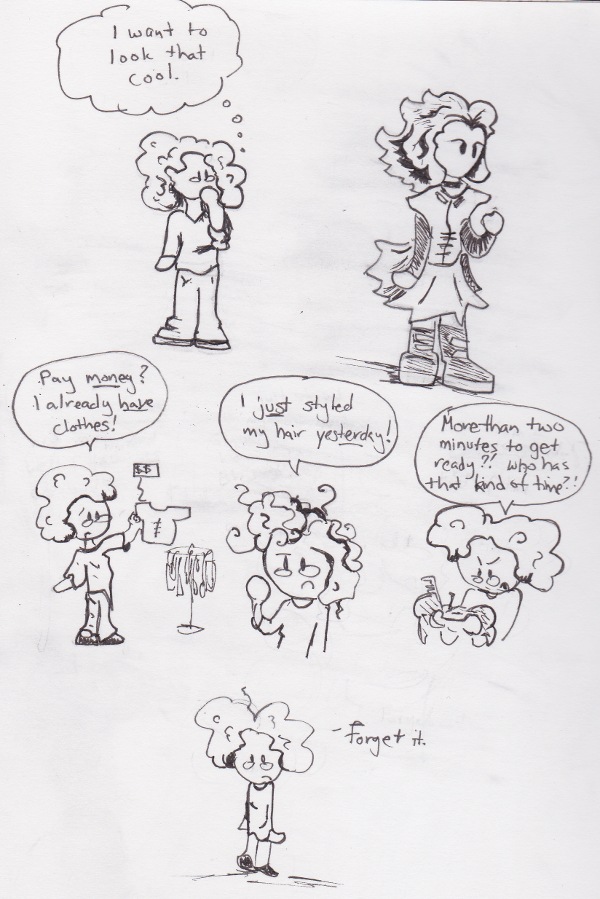 I want to
look that
cool.
Pay money?
I already have
clothes!
$$
I just styled
my hair yesterday!
More than two
minutes to get
ready?! Who has
that kind of time?!
-Forget it.